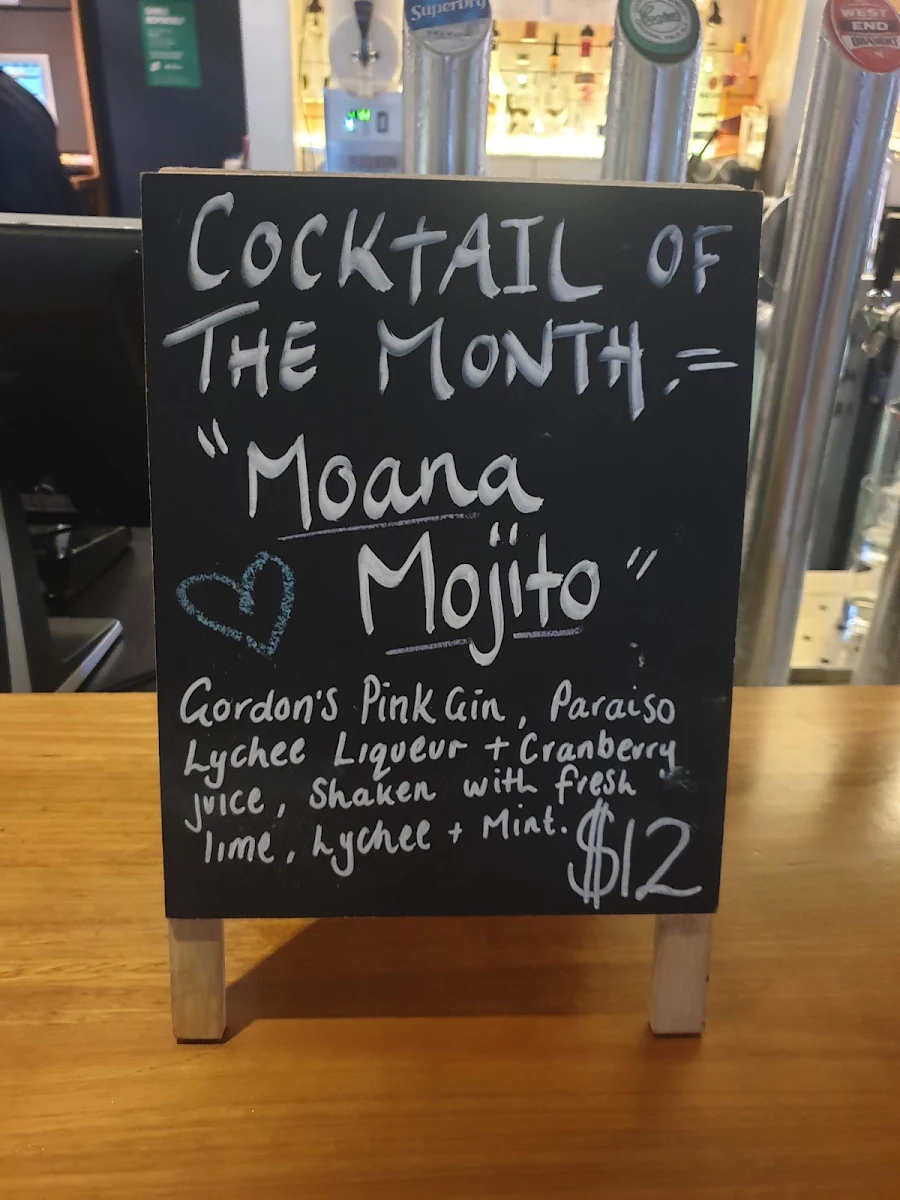 SuperDry
WEST
END
DRAUGHT
COCKTAIL OF
THE MONTH :=
"Moana
Mojito"
Gordon's Pink Gin, Paraiso
Lychee Liqueur + Cranberry
juice, Shaken with fresh
lime, Lychee + Mint.
$12